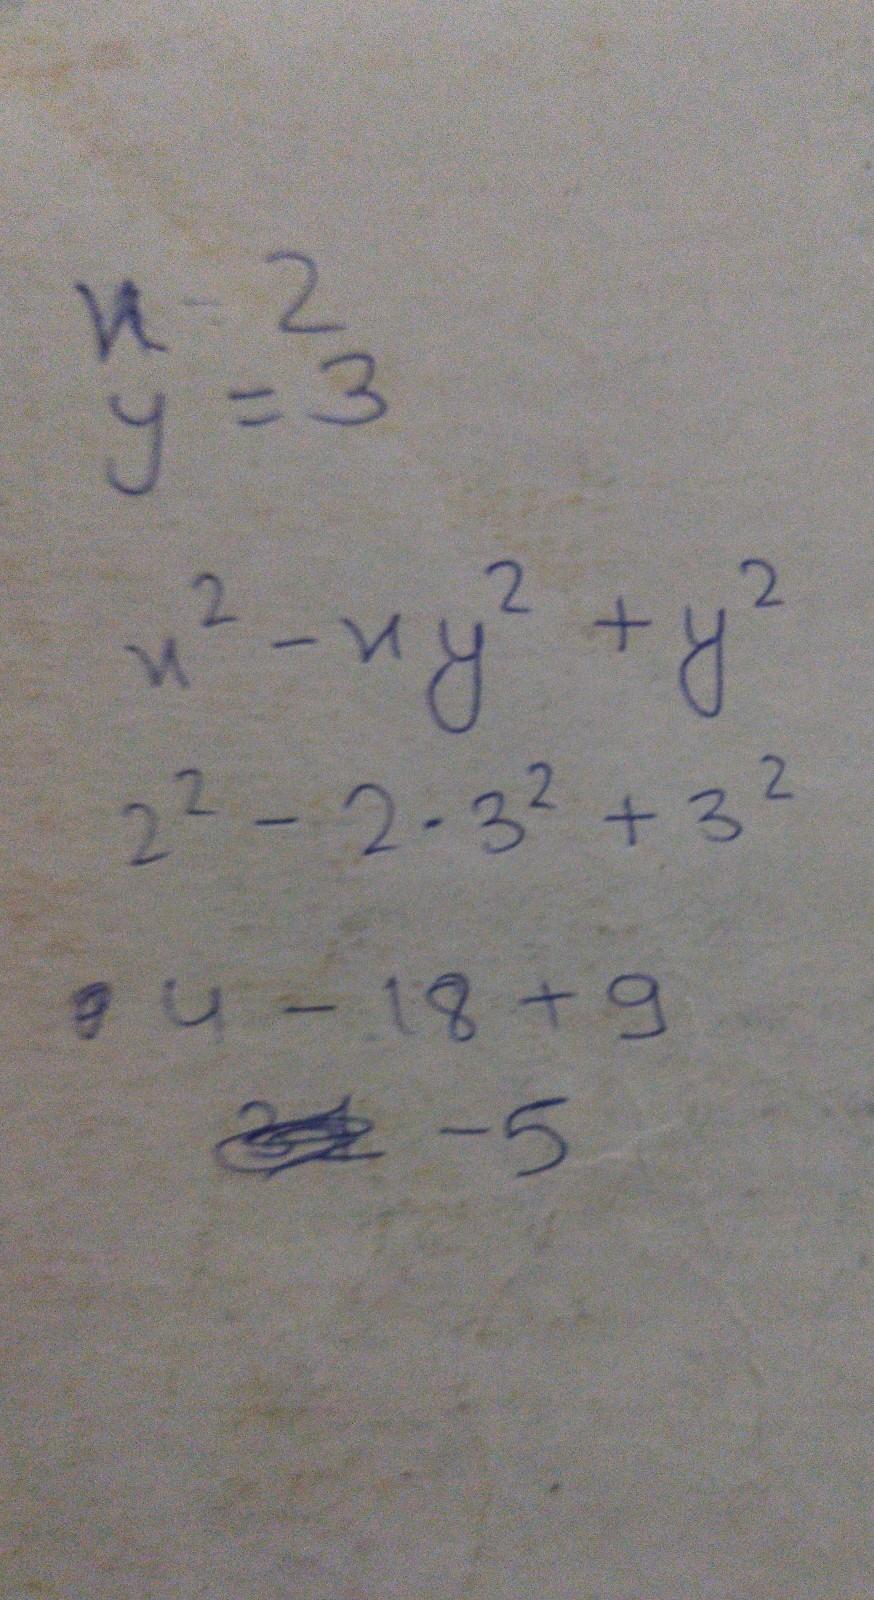 x = 2
y = 3
x² - xy² + y²
2² - 2·3² + 3²
4 - 18 + 9
-5